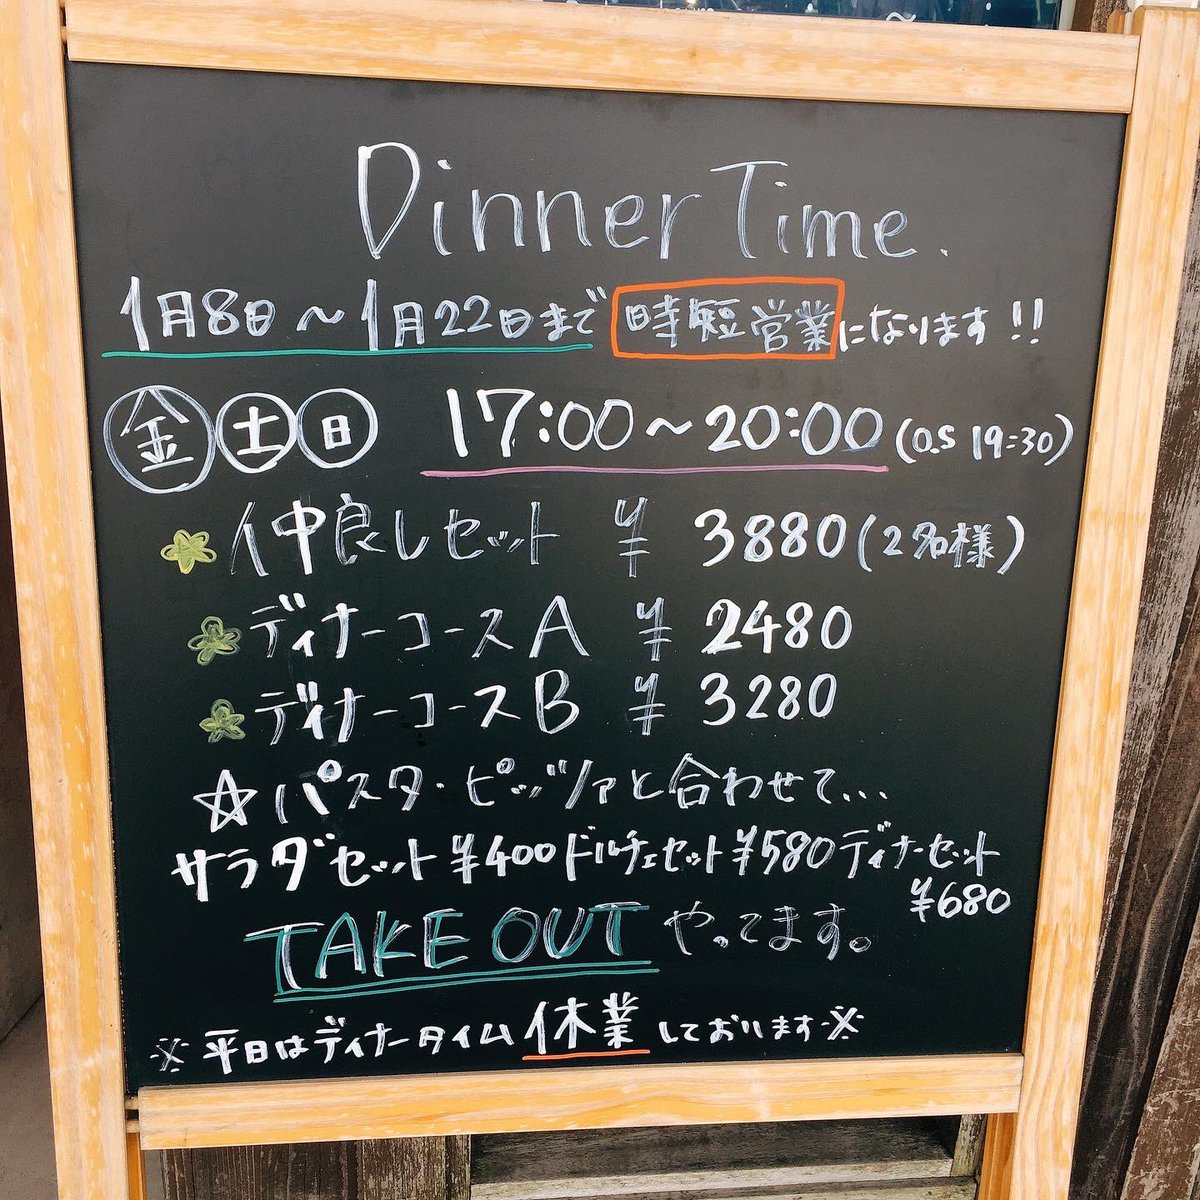 Dinner Time.
1月8日～1月22日まで 時短営業になります!!
金 土 日 17:00～20:00 (O.S 19:30)
仲良しセット ¥ 3880 (2名様)
ディナーコースA ¥ 2480
ディナーコースB ¥ 3280
☆パスタ・ピッツァと合わせて...
サラダセット ¥400 ドルチェセット ¥580 ディナーセット
¥680
TAKE OUT やってます。
※平日はディナータイム休業しております※